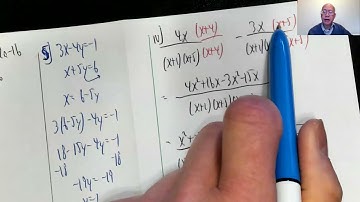 10-16
5) 3x-4y=-1
x+5y=6
x=6-5y
3(6-5y)-4y=-1
18-15y-4y=-1
-18 -18
-19y=-19
y=1
iv) 4x (x+4) - 3x (x+5)
(x+1)(x+5)(x+4) (x+1)
= 4x²+16x-3x²-15x
(x+1)(x+5)(
= x²+